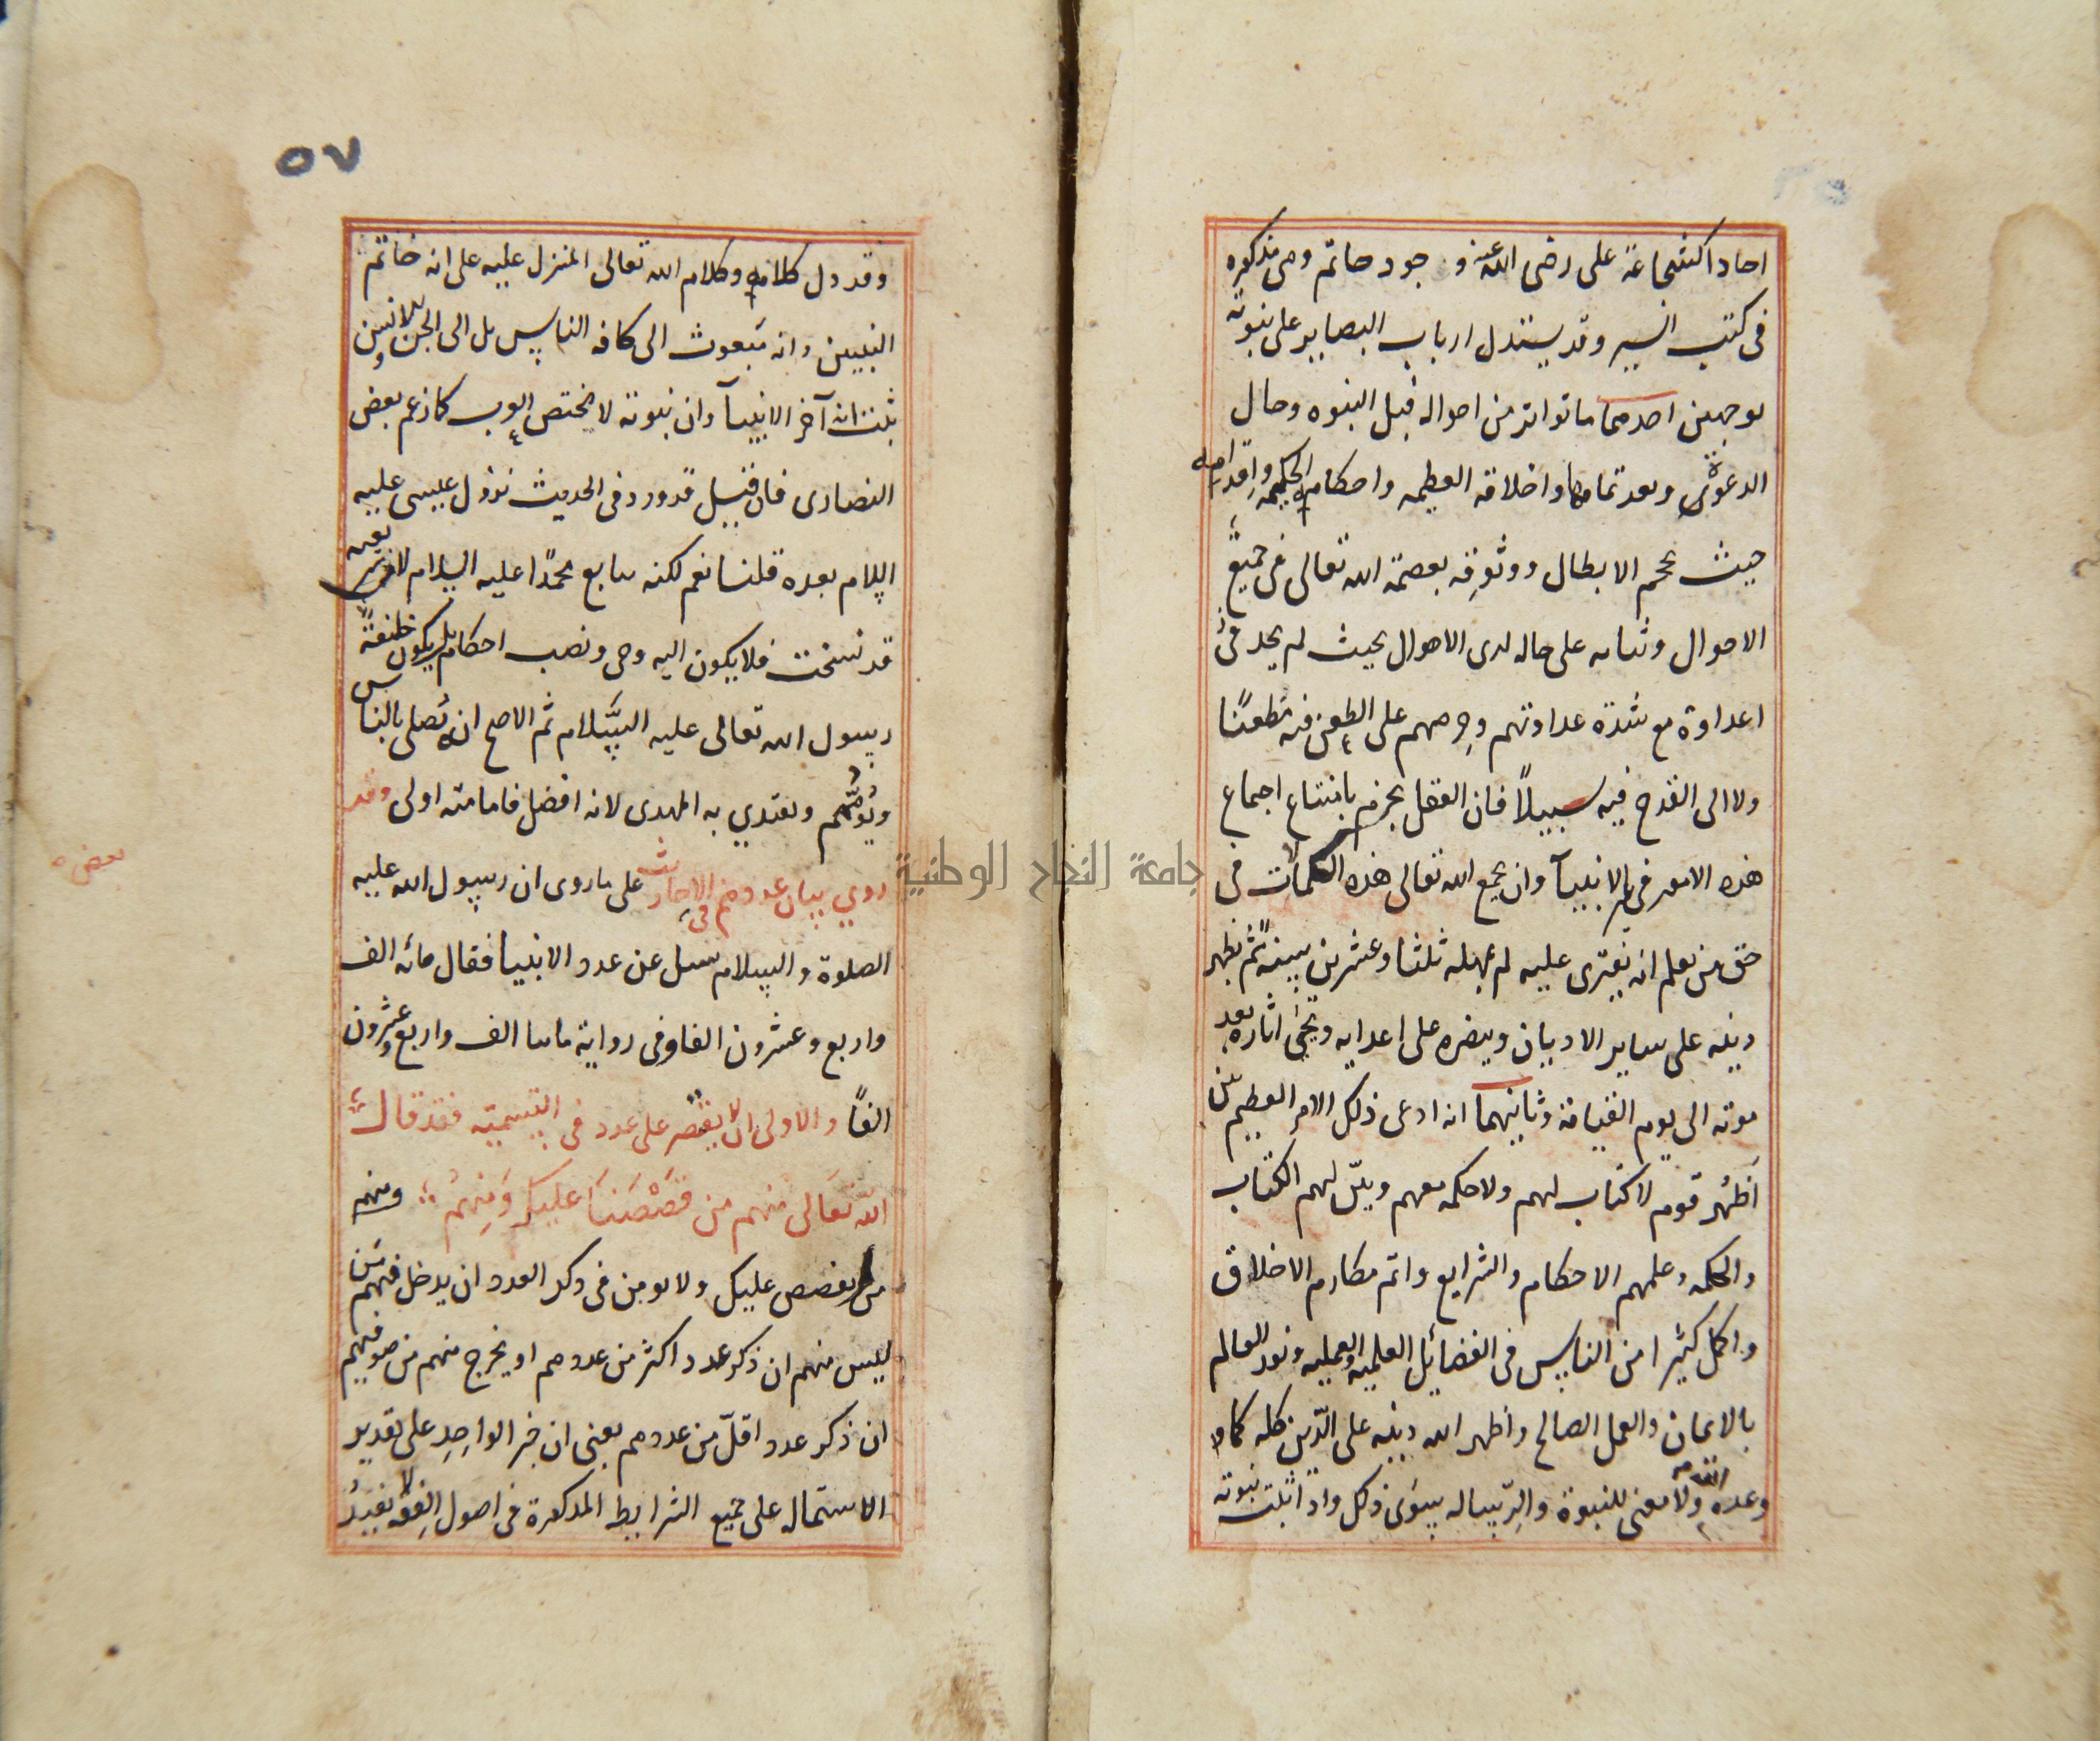 احادا كشجاعة على رضى الله عنه و جود حاتم وهى مذكوره
فى كتب السير وقد يستدل ارباب البصاير على نبوته
بوجهين احدهما ما تواتر من احواله قبل النبوه وحال
الدعوى وبعد تمامها واخلاقه العظيمه واحكامه الحكيمه واقدامه
حيث تحجم الابطال ووثوقه بعصمة الله تعالى فى جميع
الاحوال وثباته على حاله لدى الاهوال بحيث لم يجد فى
اعداوة مع شدة عداوتهم وحرصهم على الطعن فيه مطعنًا
ولا الى القدح فيه سبيلاً فان العقل يجزم بامتناع اجماع
هذه الامور فى غير الانبيآ وان يجمع الله تعالى هذه الكمالات فى
حق من يعلم انه يفترى عليه ثم يمهله ثلثا وعشرين سنةً ثم يظهر
دينه على ساير الاديان وينصره على اعدايه ويحيى اثاره بعد
موته الى يوم القيامة وثانيهما انه ادعى ذلك الامر العظيم بين
اظهر قوم لا كتاب لهم ولا حكمه معهم وبيّن لهم الكتاب
والحكمه وعلمهم الاحكام والشرايع واتم مكارم الاخلاق
واكمل كثيرا من الناس فى الفضائل العلميه والعمليه ونور العالم
بالايمان والعمل الصالح واظهر الله دينه على الدّين كله كما
وعده ولا معنى للنبوة والرّساله سوى ذلك واذا ثبتت نبوته
٥٧
وقد دل كلامه وكلام الله تعالى المنزل عليه على انه خاتم
النبيين وانه مبعوث الى كافه الناس بل الى الجن والانس
ثبت انه آخر الانبيآ وان نبوته لا تختص بالعرب كما زعم بعض
النصارى فان قيل قد ورد فى الحديث نزول عيسى عليه
السلام بعده قلنا نعم لكنه يتابع محمدًا عليه السلام لان شريعته
قد نسخت فلا يكون اليه وحى ونصب احكام بل يكون خليفةً
رسول الله تعالى عليه السَّلام ثم الاصح انه يُصلى بالناس
ويؤمّهم ويقتدي به المهدى لانه افضل فامامته اولى وقد
روي بيان عددهم فى بعض الاحاديث على ما روى ان رسول الله عليه
الصلوة والسلام سئل عن عدد الانبيا فقال مائه الف
واربع وعشرون الفا وفى رواية ماىتا الف واربع وعشرون
الفًا والاولى ان لا يقتصر على عدد فى التسمية فقد قال
الله تعَالى منهم من قَصَصْنَا عليك وَمِنهُم ومنهم
من لم نقصص عليك ولا يومن فى ذكر العدد ان يدخل فيهم مَن
ليس منهم ان ذكر عدد اكثر من عددهم او يخرج منهم من هو فيهم
ان ذكر عدد اقلّ من عددهم يعنى ان خبر الواحِدِ على تقدير
الاشتماله على جميع الشرايط المذكورة فى اصول الفقه لا يفيدُ
جامعة النجاح الوطنية